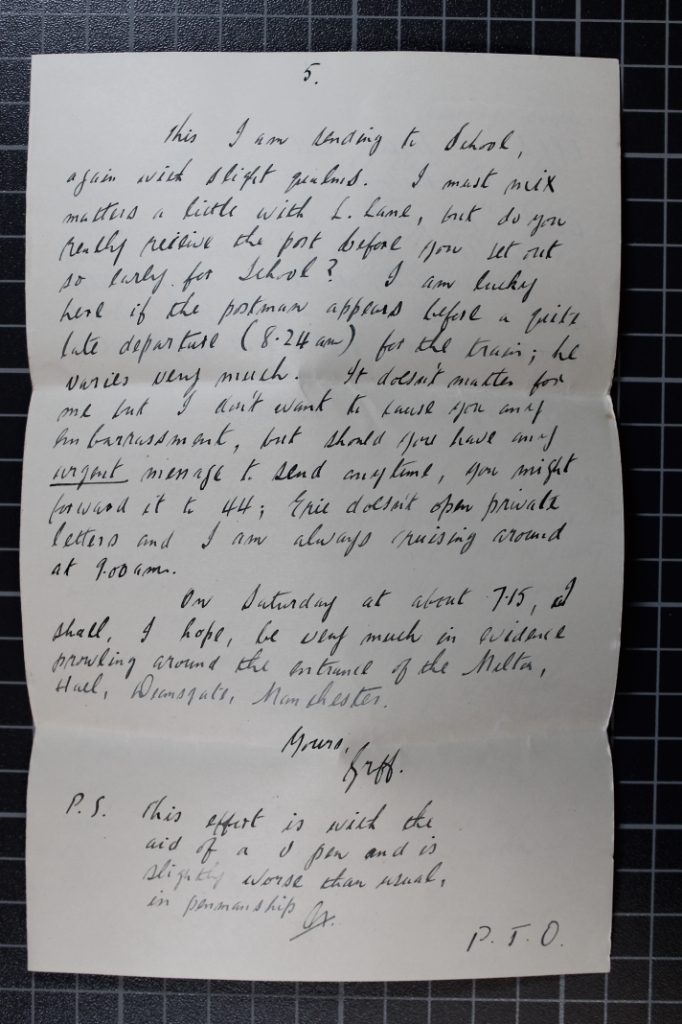 5.
This I am sending to School,
again with slight qualms. I must mix
matters a little with L. Lane, but do you
really receive the post before you set out
so early for School? I am lucky
here if the postman appears before a quite
late departure (8.24 am) for the train; he
varies very much. It doesn't matter for
me but I don't want to cause you any
embarrassment, but should you have any
urgent message to send anytime, you might
forward it to 44; Eric doesn't open private
letters and I am always cruising around
at 9.00 am.
On Saturday at about 7.15, I
shall, I hope, be very much in evidence
prowling around the entrance of the Milton,
Hall, Deansgate, Manchester.
Yours,
Griff.
P.S. This effort is with the
aid of a J pen and is
slightly worse than usual,
in penmanship
P.T.O.